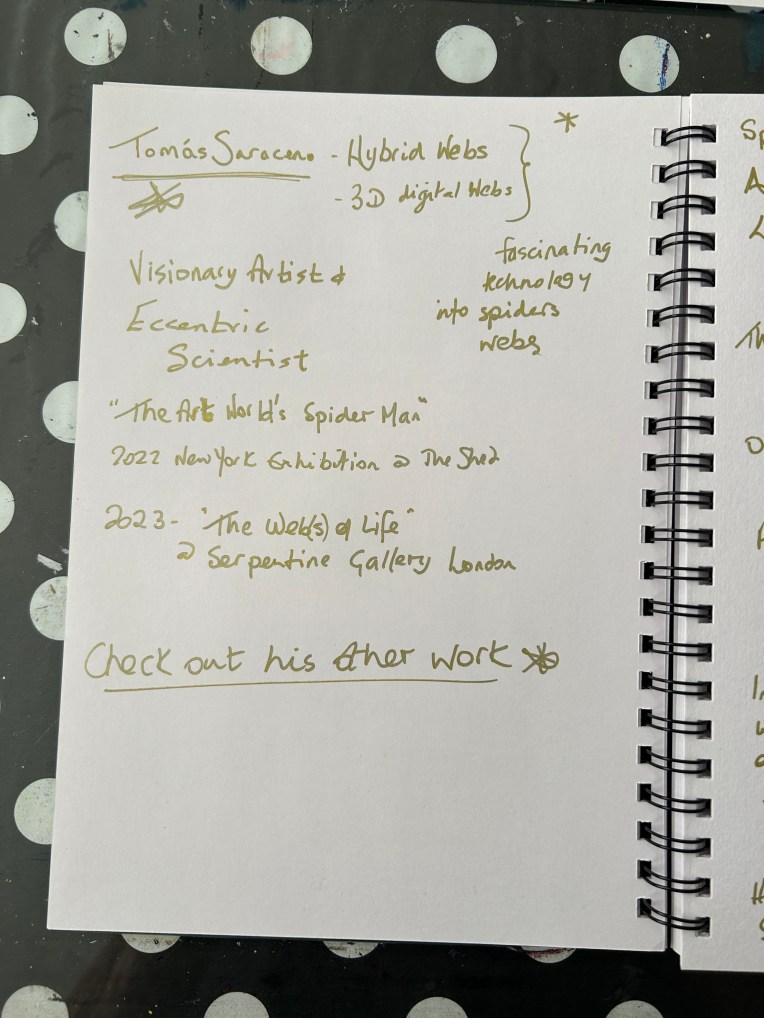 Tomás Saraceno - Hybrid Webs
- 3D digital Webs
*
fascinating
technology
into spiders
webs
Visionary Artist &
Eccentric
Scientist
"The Art World's Spider Man"
2022 New York Exhibition @ The Shed
2023 - "The Web(s) of Life"
@ Serpentine Gallery London
Check out his other work